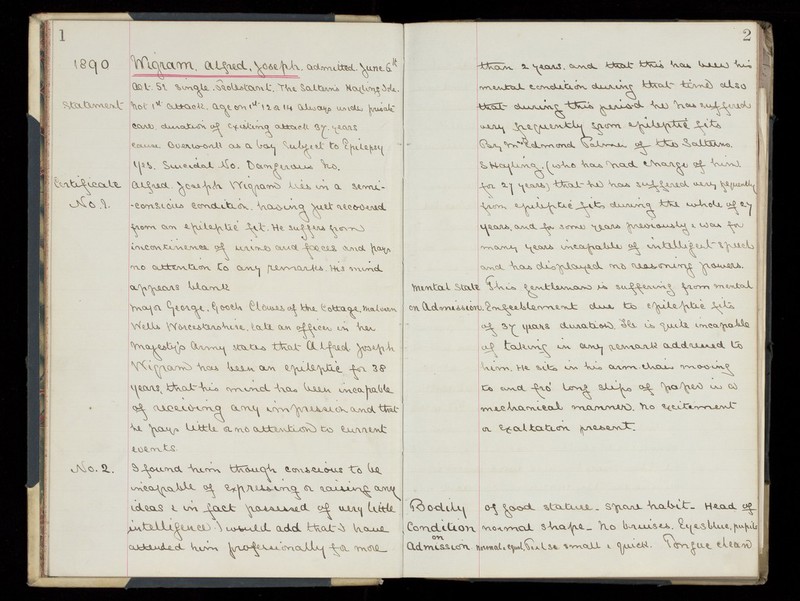 1
1890 Wigram. Alfred, Joseph. admitted June 6th
Aet. 51 Single. Protestant. The Salterns Hayling Isle.
Statement Not 1st attack. age on 1st 12 or 14 always under private
care duration of existing attack 37 years
cause Overwork as a boy Subject to Epilepsy
Yes. Suicidal No. Dangerous No.
Certificate Alfred Joseph Wigram lies in a semi-
No. 1. -conscious condition. having just recovered
from an epileptic fit. He suffers from
incontinence of urine and faeces and pays
no attention to any remarks. His mind
appears blank
Major George. Gooch Clowes of the Cottage, Malvern
Wells Worcestershire. late an officer in her
Majesty's Army states that Alfred Joseph
Wigram has been an epileptic for 38
years, that his mind has been incapable
of receiving any impression and that
he pays little or no attention to current
events.
No. 2. I found him though conscious to be
incapable of expressing or raising any
ideas & in fact possessed of very little
intelligence. I would add that I have
attended him professionally for more
2
than 2 years. and that this has been his
mental condition during that time also
that during this period he has suffered
very frequently from epileptic fits
Edmond of the Salterns.
S Hayling. (who has had charge of him
for 27 years) that he has suffered very frequently
from epileptic fits during the whole of 27
years, and for some years previously & was for
many years incapable of intelligent speech
and has displayed no reasoning powers.
Mental State This gentleman is suffering from mental
on Admission. Enfeeblement due to epileptic fits
of 37 years duration. He is quite incapable
of taking in any remark addressed to
him. He sits in his arm chair moving
to and fro' long slips of paper in a
mechanical manner. No excitement
or exaltation present.
Bodily of good stature. Spare habit. Head of
Condition normal shape. No bruises. Eyes blue, pupils
on
Admission. normal & equal. Pulse small & quick. Tongue clean